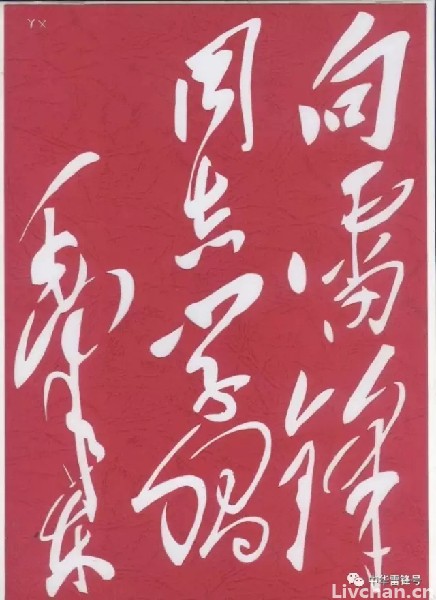 向雷锋
同志学习
毛泽东
YX
中华雷锋号
Livchan.cn